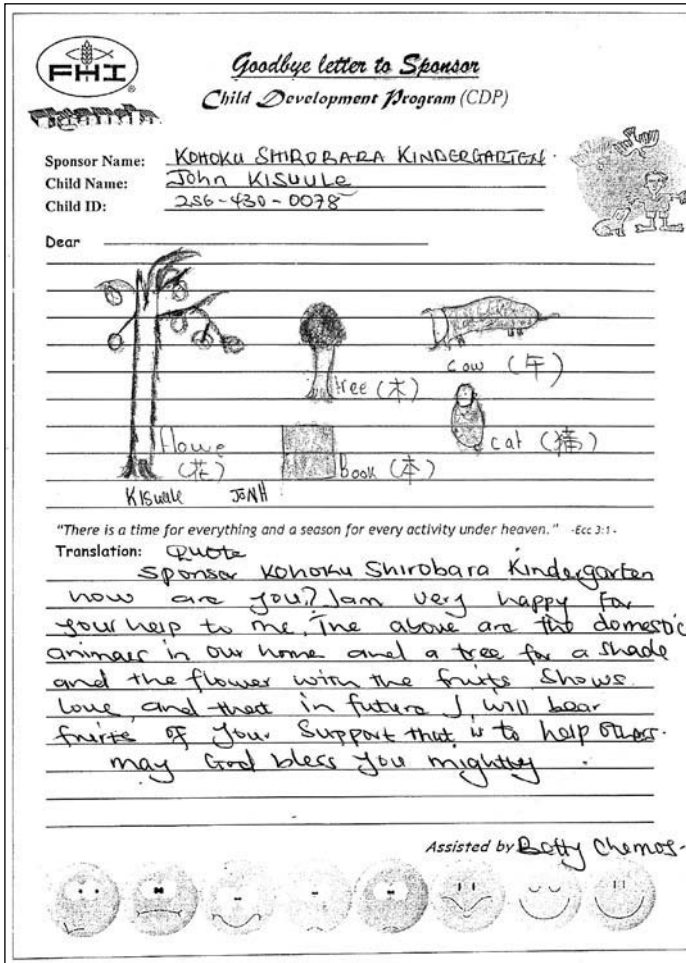 FHI
Goodbye letter to Sponsor
Child Development Program (CDP)
Sponsor Name: KOHOKU SHIROBARA KINDERGARTEN.
Child Name: John KISUULe
Child ID: 256-430-0078
Dear
cow (牛)
tree (木)
cat (猫)
flowe
(花)
Book (本)
KISuule JoNH
"There is a time for everything and a season for every activity under heaven." -Ecc 3:1-
Translation: Quote
Sponsor Kohoku Shirobara Kindergarten
how are you? I am very happy for
your help to me. The above are the domestic
animals in our home and a tree for a shade
and the flower with the fruits shows
love and that in future I will bear
fruits of your support that is to help others.
may God bless you mightly.
Assisted by Betty Chemos-